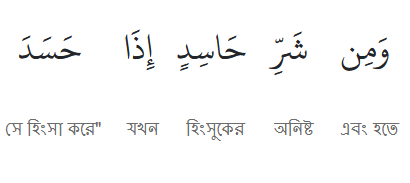 وَمِن شَرِّ حَاسِدٍ إِذَا حَسَدَ
সে হিংসা করে" যখন হিংসুকের অনিষ্ট এবং হতে